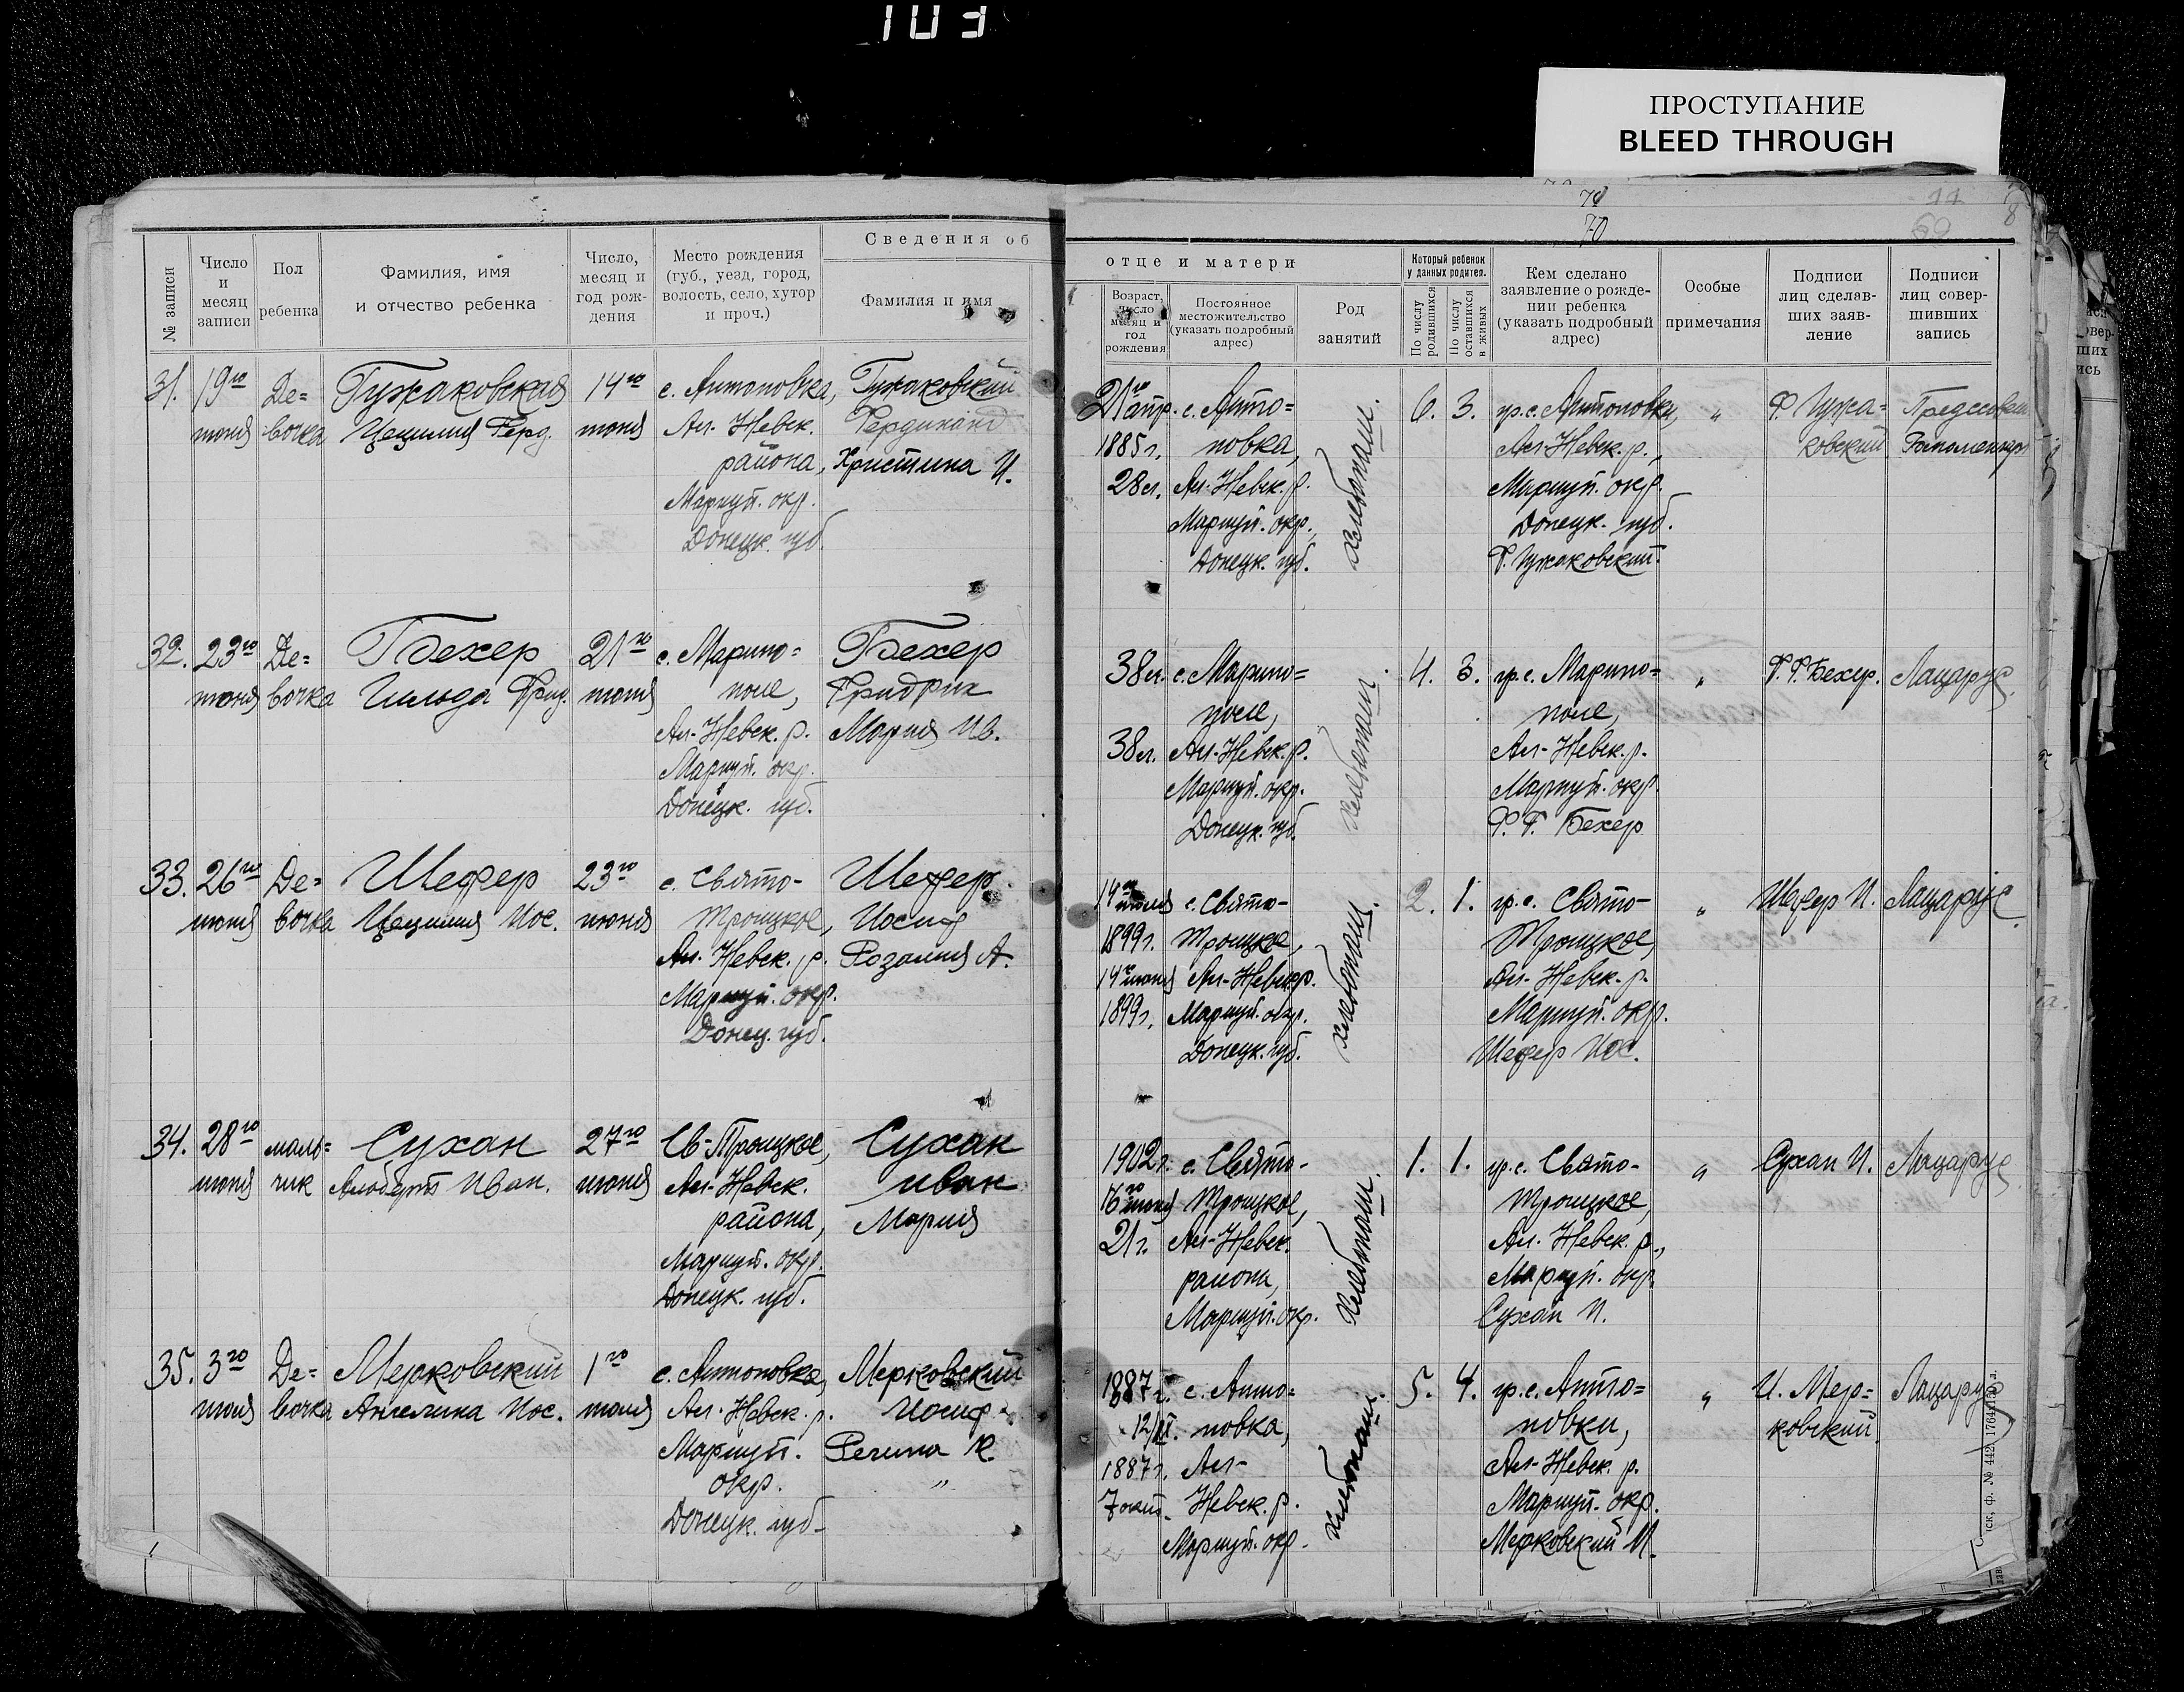 103
ПРОСТУПАНИЕ
BLEED THROUGH
70
69
8
№ записи
Число и месяц записи
Пол ребенка
Фамилия, имя и отчество ребенка
Число, месяц и год рождения
Место рождения (губ., уезд, город, волость, село, хутор и проч.)
Сведения об отце и матери
Фамилия и имя
Возраст, число месяц и год рождения
Постоянное местожительство (указать подробный адрес)
Род занятий
Который ребенок у данных родител.
По числу родившихся
По числу оставшихся в живых
Кем сделано заявление о рождении ребенка (указать подробный адрес)
Особые примечания
Подписи лиц сделавших заявление
Подписи лиц совершивших запись
31.
19го
июня
Де=
вочка
Гужаковская
Цецилия Ферд.
14го
июня
с. Антоновка,
Ал-Невск.
района,
Мариуп. окр.
Донецк. губ.
Гужаковский
Фердинанд
Христина И.
21го апр.
1885 г.
28 л.
с. Анто=
новка,
Ал-Невск. р.
Мариуп. окр.,
Донецк. губ.
хлебопаш.
6.
3.
гр. с. Антоновки,
Ал-Невск. р.,
Мариуп. окр.
Донецк. губ.
Ф. Гужаковский.
"
Ф. Гужа=
ковский
32.
23го
июня
Де=
вочка
Бехер
Гильда Фрид.
21го
июня
с. Марино=
поле,
Ал-Невск. р.
Мариуп. окр.
Донецк. губ.
Бехер
Фридрих
Мария Ив.
38 л.
38 л.
с. Марино=
поле,
Ал-Невск. р.
Мариуп. окр.
Донецк. губ.
хлебопаш.
4.
3.
гр. с. Марино=
поле,
Ал-Невск. р.
Мариуп. окр.
Ф. Г. Бехер
"
Ф. Ф. Бехер.
Лацарус
33.
26го
июня
Де=
вочка
Шефер
Цецилия Иос.
23го
июня
с. Свято-
Троицкое,
Ал-Невск. р.
Мариуп. окр.
Донец. губ.
Шефер
Иосиф
Розалия А.
14го
1899 г.
14го июня
1899 г.
с. Свято-
Троицкое,
Ал-Невск. р.
Мариуп. окр.
Донецк. губ.
хлебопаш.
2.
1.
гр. с. Свято-
Троицкое,
Ал-Невск. р.
Мариуп. окр.
Шефер Иос.
"
Шефер И.
Лацарус
34.
28го
июня
маль=
чик
Сухан
Альберт Иван.
27го
июня
Св-Троицкое,
Ал-Невск.
района,
Мариуп. окр.
Донецк. губ.
Сухан
Иван
Мария
1902 г.
16го июня
21 г.
с. Свято-
Троицкое,
Ал-Невск.
района,
Мариуп. окр.
хлебопаш.
1.
1.
гр. с. Свято-
Троицкое,
Ал-Невск. р.,
Мариуп. окр.
Сухан И.
"
Сухан И.
Лацарус
35.
3го
июля
Де=
вочка
Мерковский
Ангелина Иос.
1го
июля
с. Антоновка,
Ал-Невск. р.
Мариуп.
окр.
Донецк. губ.
Мерковский
Иосиф
Регина К.
"
1887 г.
1887 г.
7 окт.
с. Анто=
новка,
Ал-
Невск. р.
Мариуп. окр.
хлебопаш.
5.
4.
гр. с. Анто=
новки,
Ал-Невск. р.
Мариуп. окр.
Мерковский И.
"
И. Мер=
ковский.
Лацарус